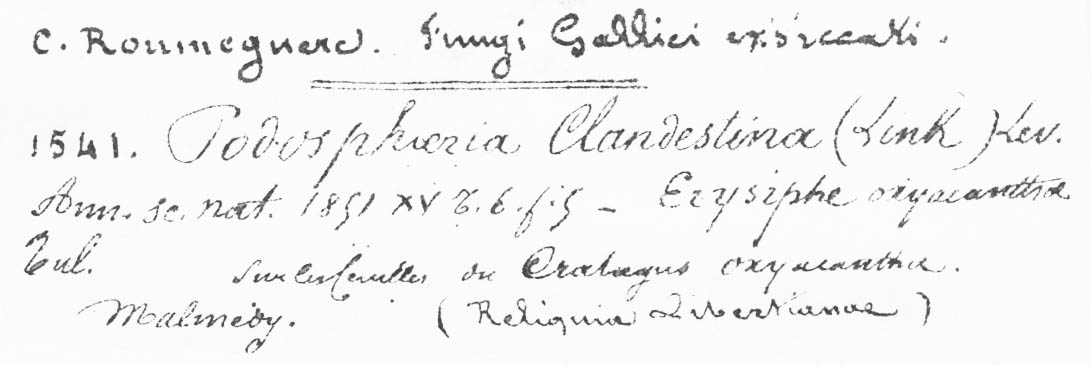 C. Roumeguere. Fungi Gallici exsiccati.
1541. Podosphæria Clandestina (Link) Lev.
Ann. sc. nat. 1851 XV t. 6. f. 5 – Erysiphe oxyacanthæ
Tul. sur les feuilles du Cratægus oxyacantha.
Malmedy. (Reliquia Libertianae)